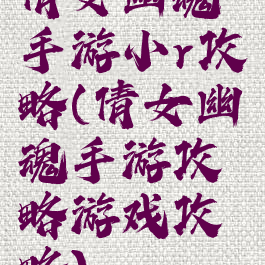 倩女幽魂
手游小r攻
略(倩女幽
魂手游攻
略游戏攻
略)